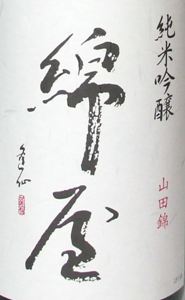 純米吟醸
山田錦
綿屋